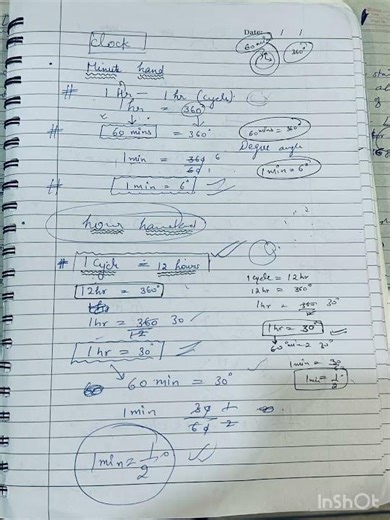 Clock
Date: / /
60 min
360°
Minute hand
# 1 Hr — 1 hr (cycle)
1 hr = 360°
# 60 mins = 360°
60 mins = 360°
Degree angle
1 min = 360 6
60 1
1 min = 6°
# 1 min = 6°
hour
# 1 Cycle = 12 hours
12 hr = 360°
1 hr = 360 30
12
1 hr = 30°
60 min = 30°
1 min 30 1
60 2
1 min = 1/2°
1 cycle = 12 hr
12 hr = 360°
1 hr = 360 30°
12
1 hr = 30°
60 min = 30°
1 min = 30
60
1 min = 1/2
InShOt